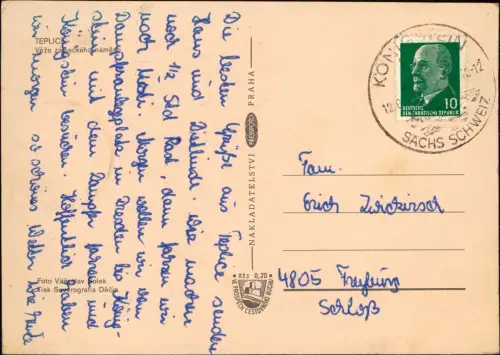 TEPLICE
Věže zámeckého náměstí
Die besten Grüße aus Teplice senden
Hans und Dietlinde. Wir machen
noch 1/2 Std Rast, dann fahren wir
nach Hause. Morgen wollen wir von
Dampferanlegplatz in Dresden bis König-
stein mit dem Dampfer fahren und
Königstein besuchen. Hoffentlich haben
wir morgen so schönes Wetter wie heute
Foto Vítězslav Rolek
Tisk Severografia Děčín
NAKLADATELSTVÍ PRAHA
Kčs 0,20
KÖNIGSTEIN
SÄCHS SCHWEIZ
10
DEUTSCHE
DEMOKRATISCHE REPUBLIK
Fam.
Erich Zwickirsch
4805 Freyburg
Schloß